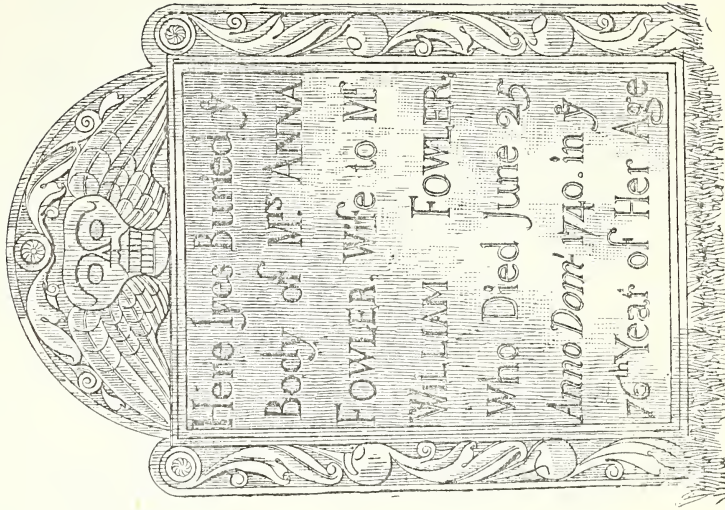 Here lyes Buried yͤ
Body of Mʳˢ ANNA
FOWLER, Wife to Mʳ
WILLIAM FOWLER,
Who Died June 25
Anno Domⁱ 1740. in yͤ
76ᵗʰ Year of Her Age